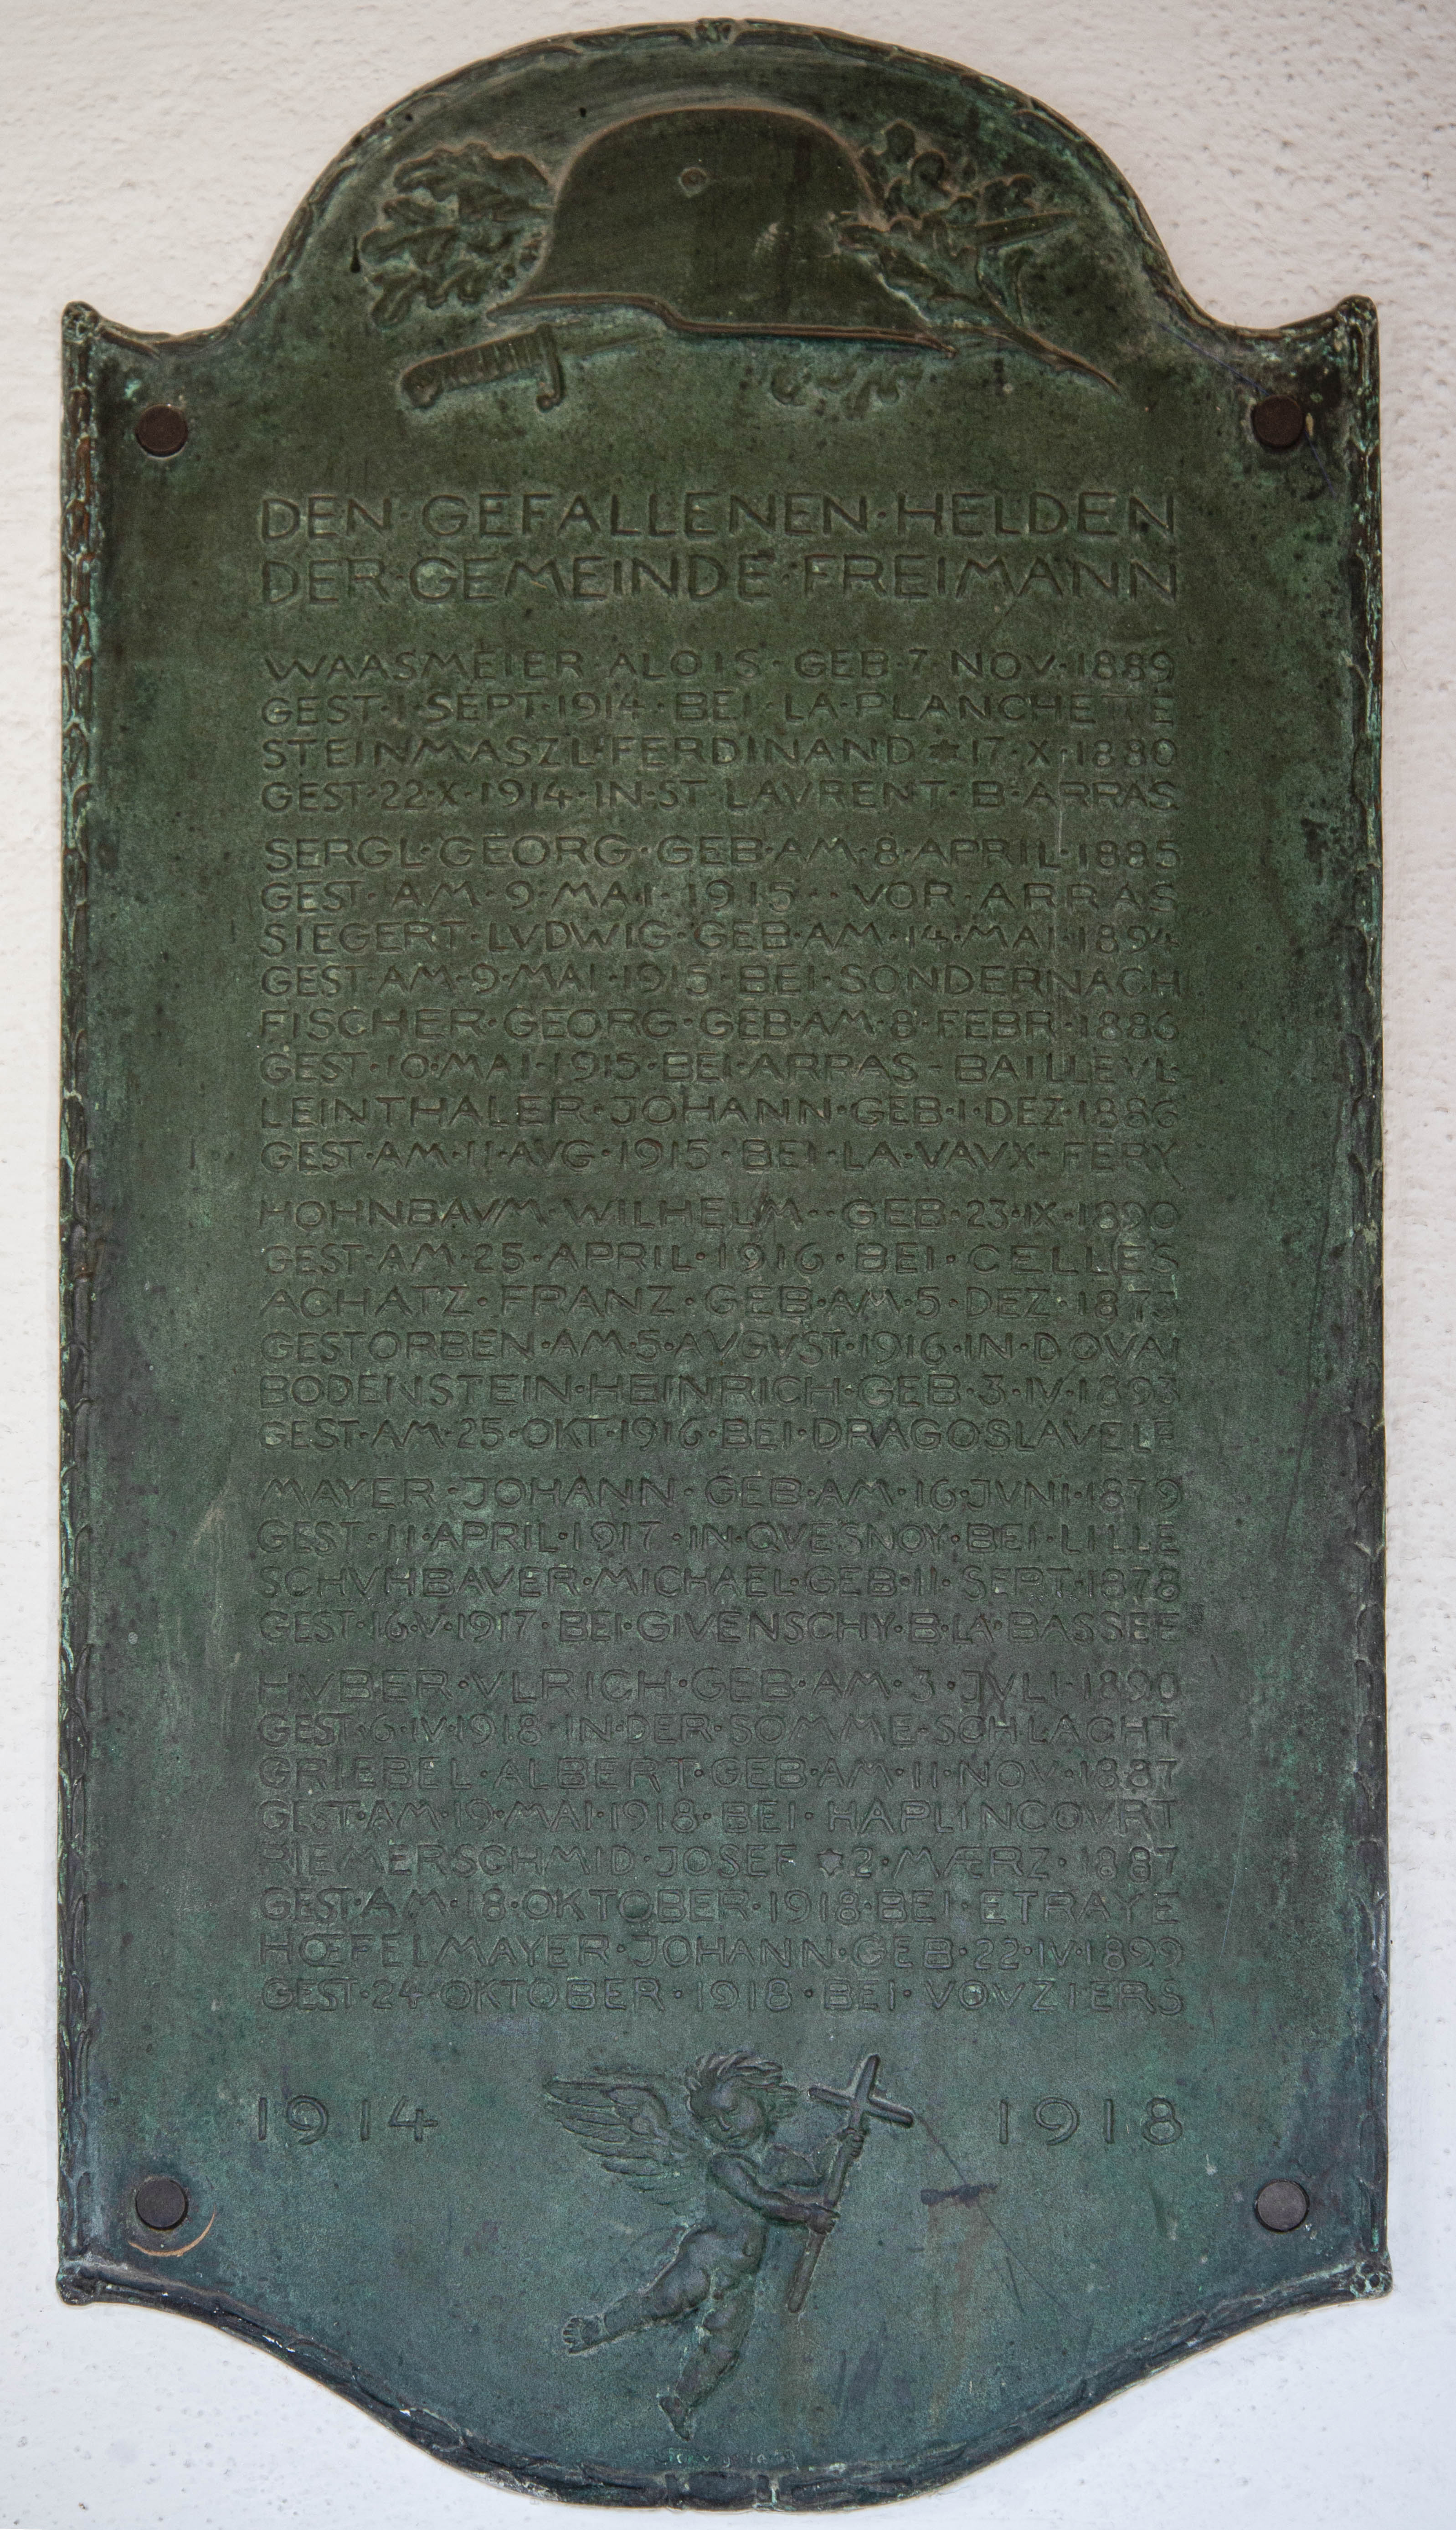 DEN·GEFALLENEN·HELDEN
DER·GEMEINDE·FREIMANN
WAASMEIER·ALOIS·GEB·7·NOV·1889
GEST·1·SEPT·1914·BEI·LA·PLANCHETTE
STEINMASZL·FERDINAND*17·X·1880
GEST·22·X·1914·IN·ST LAVRENT·B·ARRAS
SERGL·GEORG·GEB·AM·8·APRIL·1885
GEST·AM·9·MAI·1915··VOR·ARRAS
SIEGERT·LVDWIG·GEB·AM·14·MAI·1894
GEST·AM·9·MAI·1915·BEI·SONDERNACH
FISCHER·GEORG·GEB·AM·8·FEBR·1886
GEST·10·MAI·1915·BEI·ARRAS-BAILLEVL
LEINTHALER·JOHANN·GEB·1·DEZ·1886
GEST·AM·11·AVG·1915·BEI·LA·VAVX-FERY
HOHNBAVM·WILHELM··GEB·23·IX·1890
GEST·AM·25·APRIL·1916·BEI·CELLES
ACHATZ·FRANZ·GEB·AM·5·DEZ·1873
GESTORBEN·AM·5·AVGVST·1916·IN·DOVAI
BODENSTEIN·HEINRICH·GEB·3·IV·1893
GEST·AM·25·OKT·1916·BEI·DRAGOSLAVELE
MAYER·JOHANN·GEB·AM·16·JVNI·1879
GEST·11·APRIL·1917·IN·QVESNOY·BEI·LILLE
SCHVHBAVER·MICHAEL·GEB·11·SEPT·1878
GEST·16·V·1917·BEI·GIVENSCHY·B·LA·BASSEE
HVBER·VLRICH·GEB·AM·3·JVLI·1890
GEST·6·IV·1918·IN·DER·SOMME·SCHLACHT
GRIEBEL·ALBERT·GEB·AM·11·NOV·1887
GEST·AM·19·MAI·1918·BEI·HAPLINCOVRT
RIEMERSCHMID·JOSEF *2·MÆRZ·1887
GEST·AM·18·OKTOBER·1918·BEI·ETRAYE
HŒFELMAYER·JOHANN·GEB·22·IV·1899
GEST·24·OKTOBER·1918·BEI·VOVZIERS
1914 1918